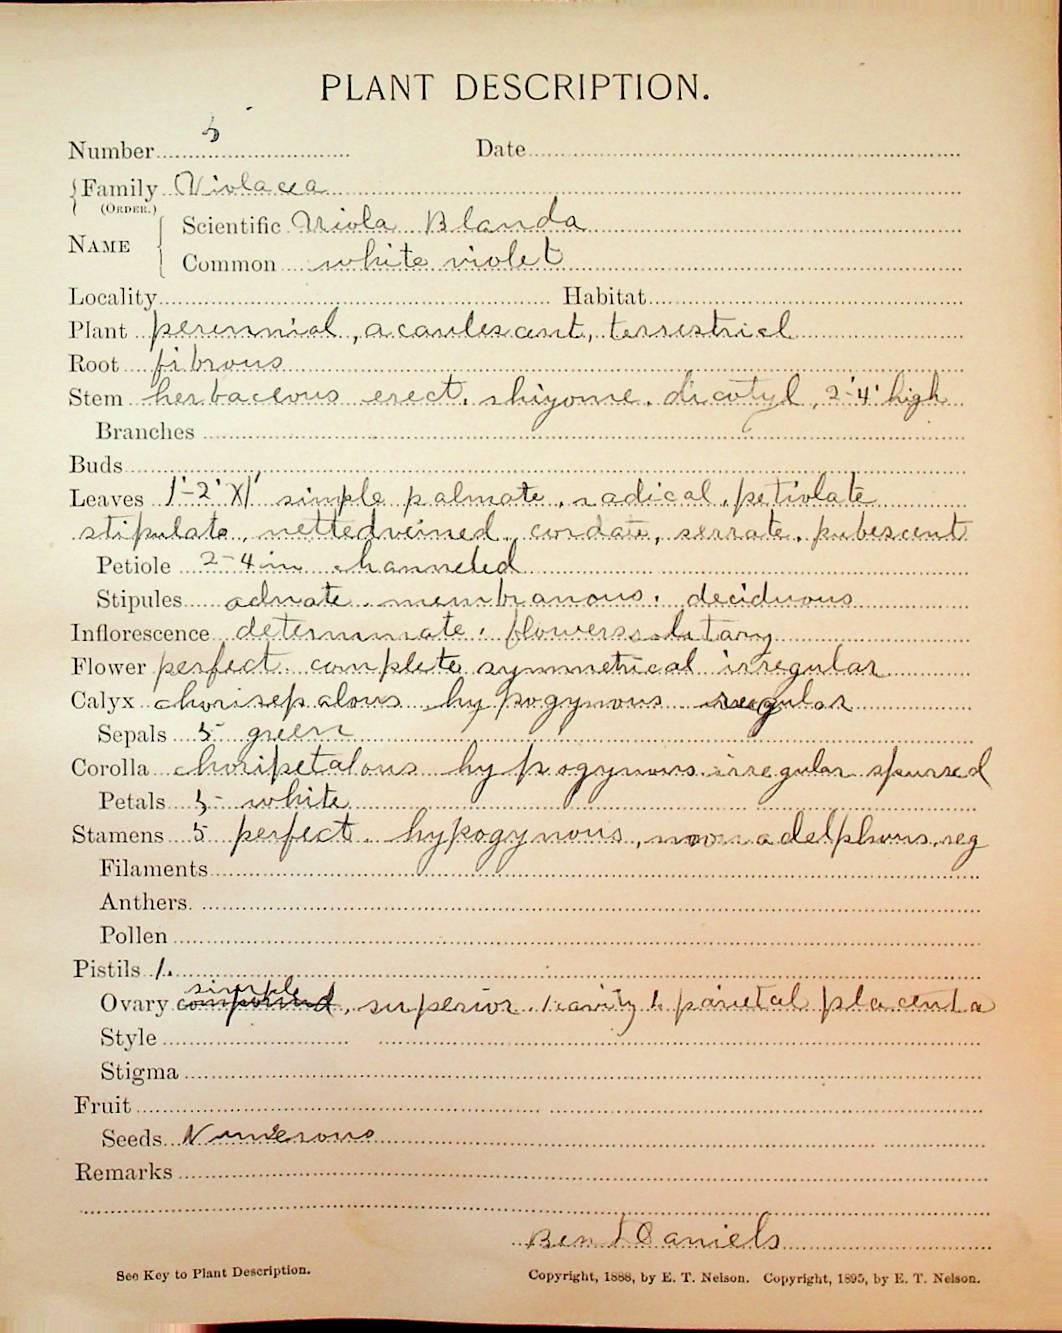 PLANT DESCRIPTION.
Number 5 Date
Family Violacea
(ORDER.)
NAME Scientific Viola Blanda
Common white violet
Locality Habitat
Plant perennial, acaulescent, terrestrial
Root fibrous
Stem herbaceous erect, rhizome, dicotyl, 2'-4' high
Branches
Buds
Leaves 1'-2' X 1' simple palmate, radical, petiolate
stipulate, nettedveined, cordate, serrate, pubescent
Petiole 2-4 in channeled
Stipules adnate membranous, deciduous
Inflorescence determinate, flowers solitary
Flower perfect complete symmetrical irregular
Calyx chorisepalous hypogynous regular
Sepals 5- green
Corolla choripetalous hypogynous irregular spurred
Petals 5- white
Stamens 5 perfect, hypogynous, monadelphous, reg
Filaments
Anthers.
Pollen
Pistils 1.
simple
Ovary compound, superior, 1 cavity parietal placenta
Style
Stigma
Fruit
Seeds Numerous
Remarks
Ben Daniels
See Key to Plant Description. Copyright, 1888, by E. T. Nelson. Copyright, 1895, by E. T. Nelson.